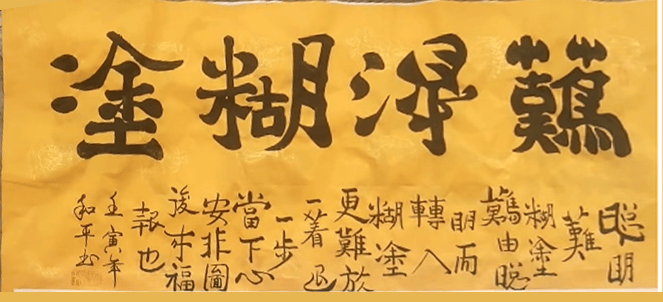 難得糊塗
聰明
難
糊塗
難由聰
明而
轉入
糊塗
更難放
一著退
一步
當下心
安非圖
後來福
報也
壬寅年
和平书